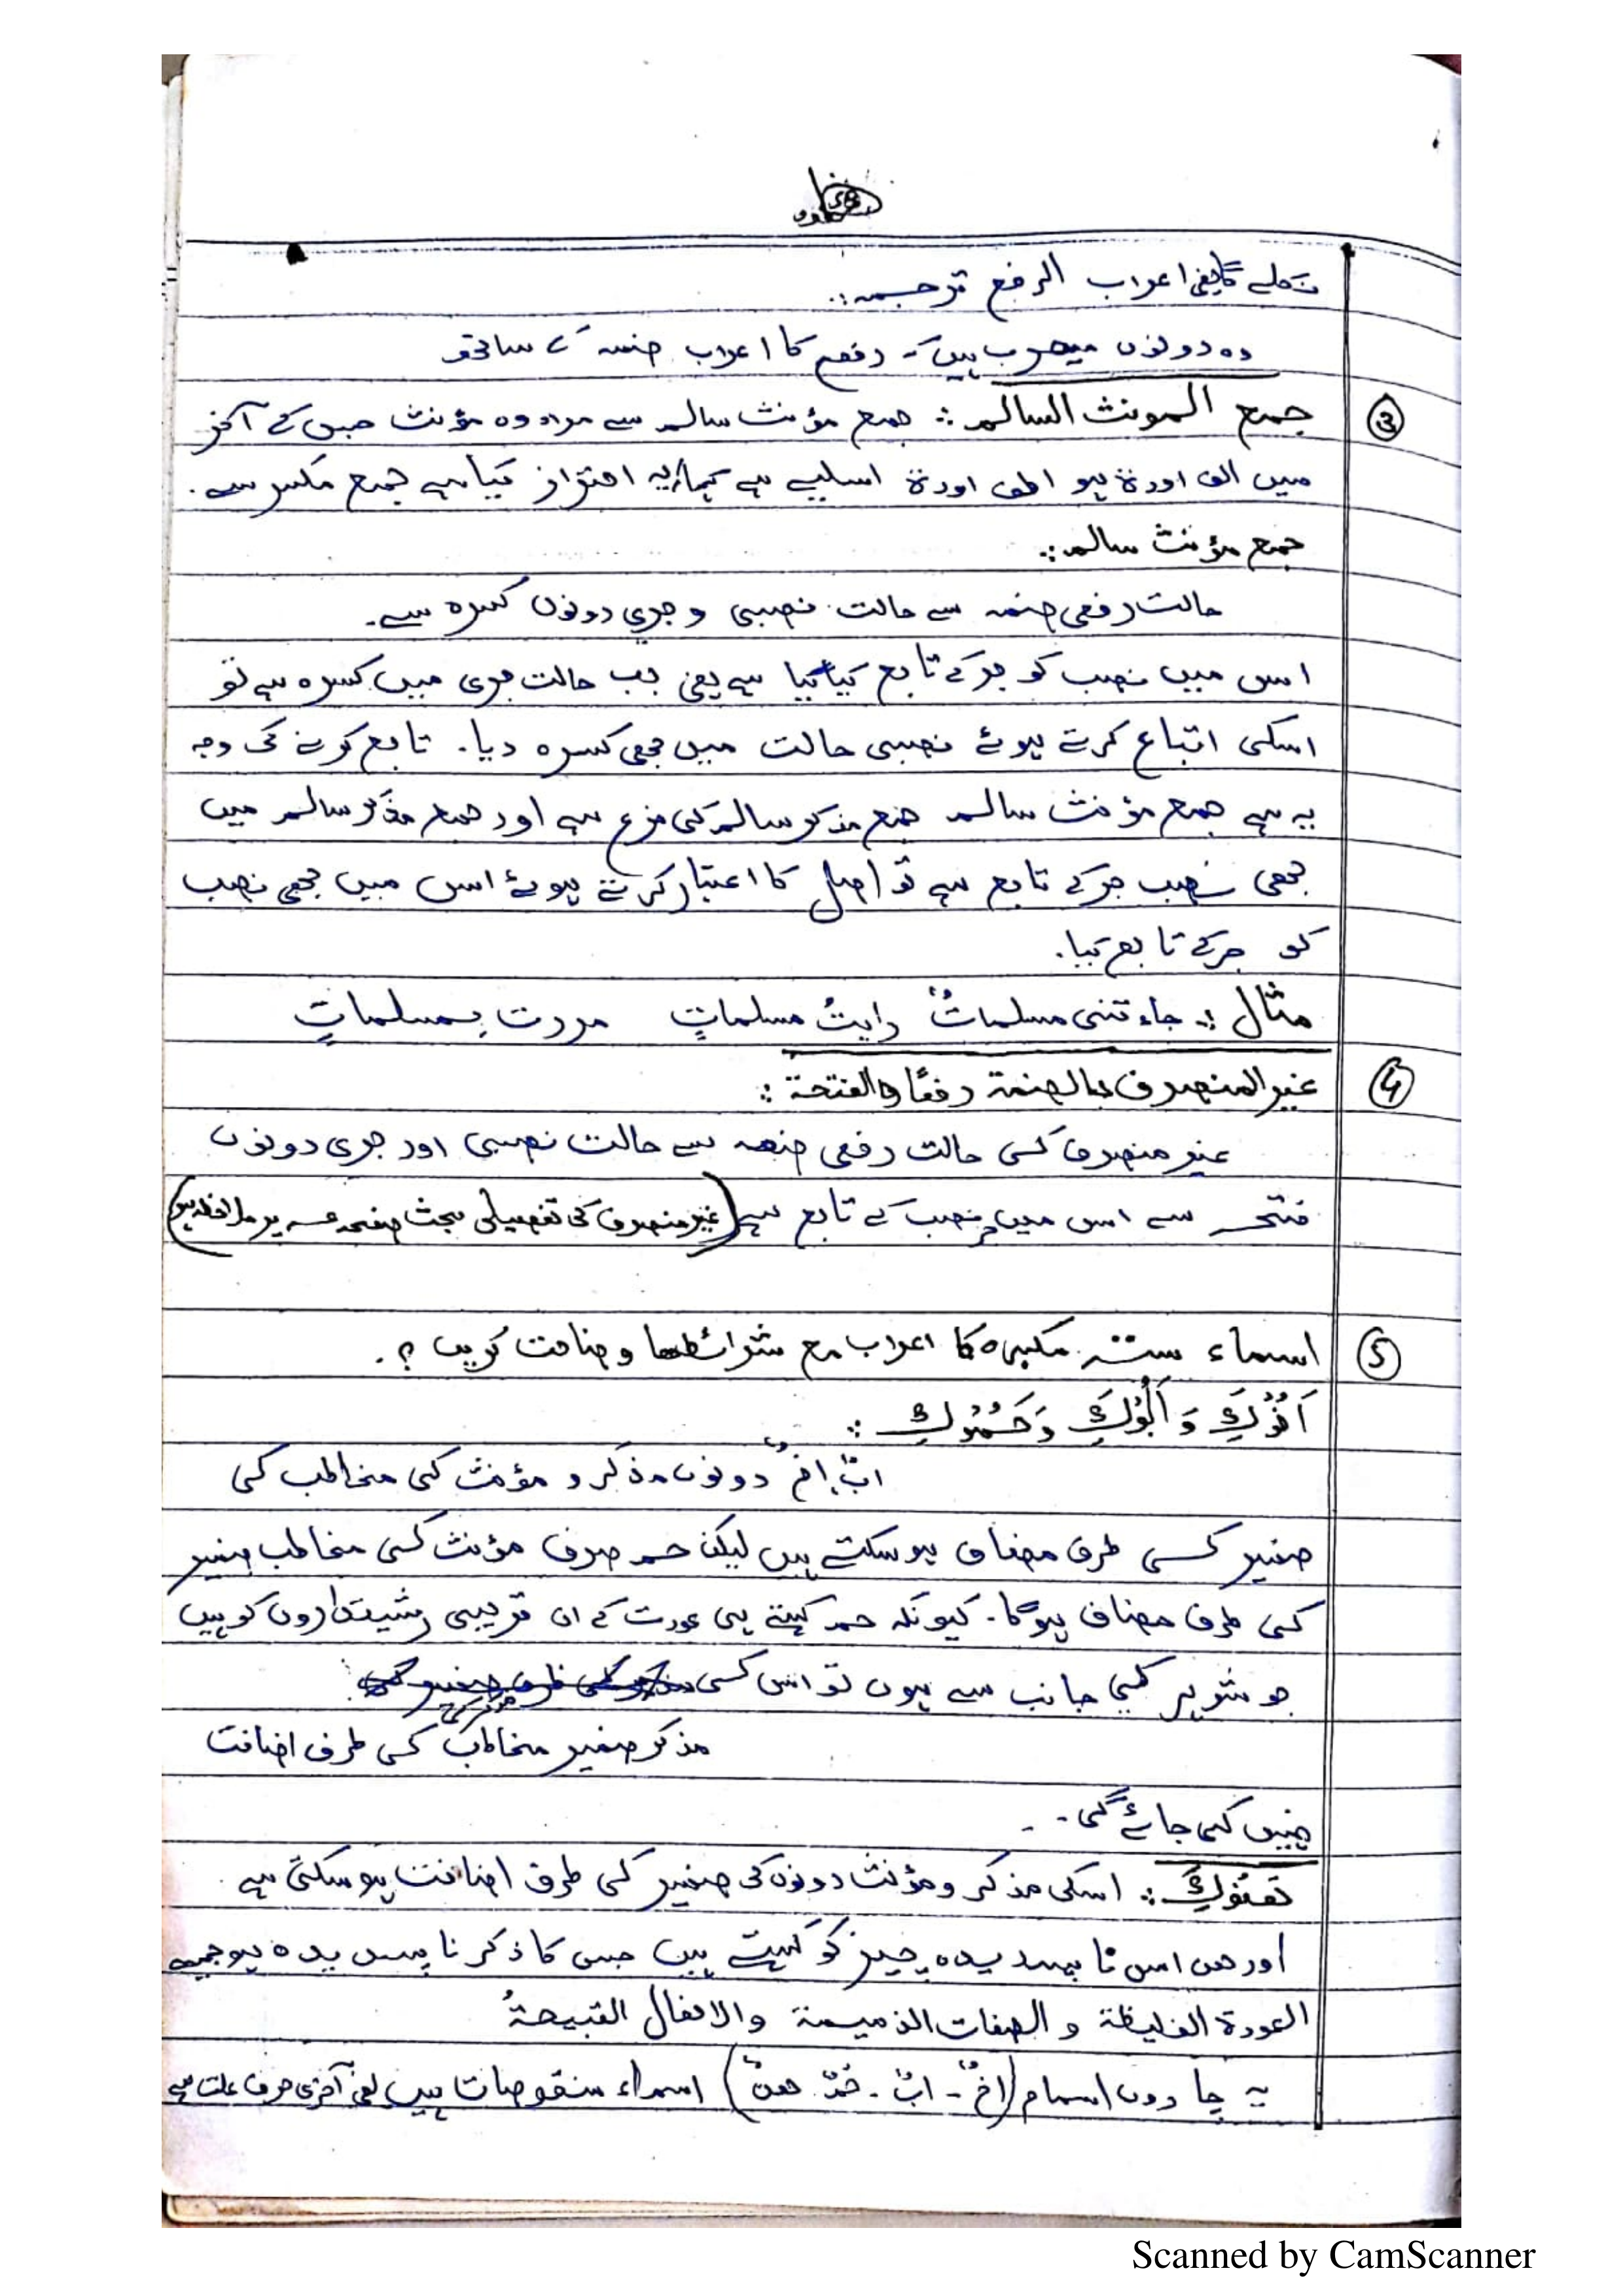 اعراب الرفع ترجمہ:.
وہ دونوں معرب ہیں رفع کا اعراب ضمہ کے ساتھ
③ جمع المونث السالم :. جمع مؤنث سالم سے مراد وہ مؤنث جس کے آخر
میں الف اور ۃ ہو الف اور ۃ اسلیے ہے احتراز کیا ہے جمع مکسر سے.
جمع مؤنث سالم:.
حالت رفعی ضمہ سے حالت نصبی و جری دونوں کسرہ سے.
اس میں نصب کو جر کے تابع کیا گیا ہے یعنی جب حالت جری میں کسرہ ہے تو
اسکی اتباع کرتے ہوئے نصبی حالت میں بھی کسرہ دیا. تابع کرنے کی وجہ
یہ ہے جمع مؤنث سالم جمع مذکر سالم کی فرع ہے اور جمع مذکر سالم میں
بھی نصب جر کے تابع ہے تو اصل کا اعتبار کرتے ہوئے اس میں بھی نصب
کو جر کے تابع کیا.
مثال :. جاء تنی مسلماتٌ رایتُ مسلماتٍ مررت بمسلماتٍ
④ غیر المنصرف بالضمة رفعًا والفتحة :.
غیر منصرف کی حالت رفعی ضمہ سے حالت نصبی اور جری دونوں
فتحہ سے اس میں جر نصب کے تابع ہے (غیر منصرف کی تفصیلی بحث صفحہ پر ملاحظہ ہو)
⑤ اسماء ستہ مکبرہ کا اعراب مع شرائطھا وضاحت کریں ؟.
اَخُوْكَ وَ اَبُوْكَ وَحَمُوْكِ :.
ابٌ، اخٌ دونوں مذکر و مؤنث کی مخاطب کی
ضمیر کی طرف مضاف ہو سکتے ہیں لیکن حم صرف مؤنث کی مخاطب ضمیر
کی طرف مضاف ہوگا. کیونکہ حم کہتے ہی عورت کے ان قریبی رشیتداروں کو ہیں
جو شوہر کی جانب سے ہوں تو اس کی
مذکر ضمیر مخاطب کی طرف اضافت
نہیں کی جائے گی.
ھَنُوْكَ :. اسکی مذکر و مؤنث دونوں کی ضمیر کی طرف اضافت ہو سکتی ہے.
اور ھن اس نا پسندیدہ چیز کو کہتے ہیں جس کا ذکر نا پسندیدہ ہو جیسے
العورة الغلیظة و الصفات الذمیمة والافعال القبیحةُ
یہ چاروں اسمام (اخٌ - ابٌ - حمٌ ھنٌ) اسماء منقوصات ہیں یعنی آخری حرف علت ہے
Scanned by CamScanner